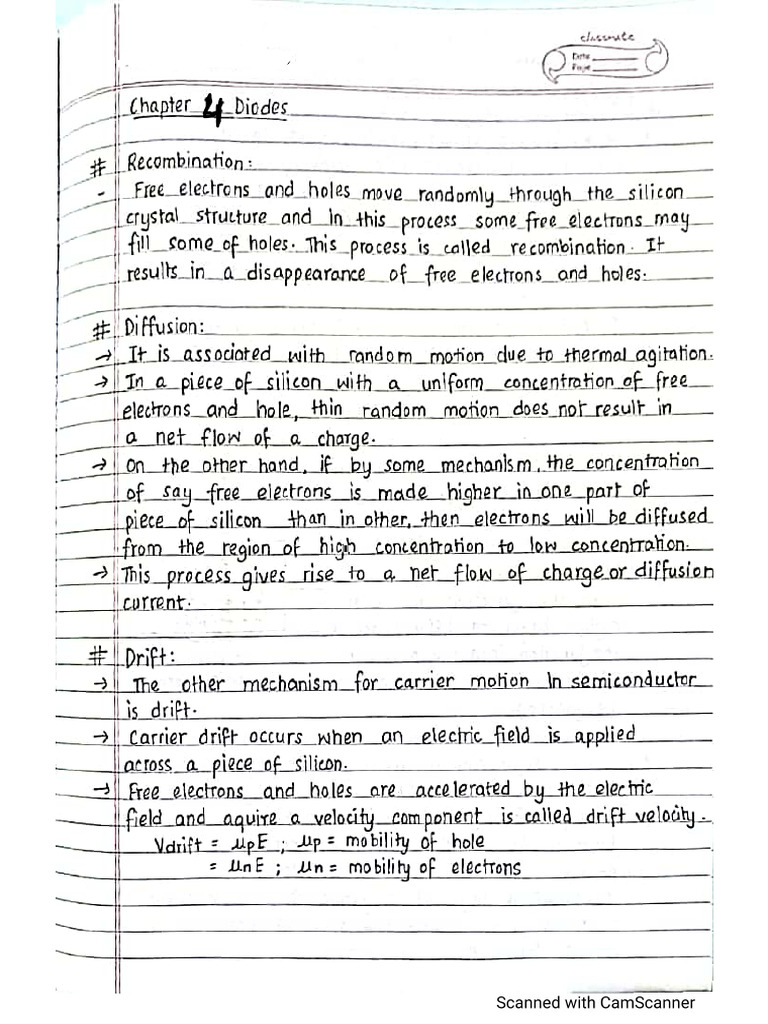 classmate
Date
Page
Chapter 4 Diodes
# Recombination:
- Free electrons and holes move randomly through the silicon
crystal structure and in this process some free electrons may
fill some of holes. This process is called recombination. It
results in a disappearance of free electrons and holes.
# Diffusion:
→ It is associated with random motion due to thermal agitation.
→ In a piece of silicon with a uniform concentration of free
electrons and hole, thin random motion does not result in
a net flow of a charge.
→ On the other hand, if by some mechanism, the concentration
of say free electrons is made higher in one part of
piece of silicon than in other, then electrons will be diffused
from the region of high concentration to low concentration.
→ This process gives rise to a net flow of charge or diffusion
current.
# Drift:
→ The other mechanism for carrier motion in semiconductor
is drift.
→ Carrier drift occurs when an electric field is applied
across a piece of silicon.
→ Free electrons and holes are accelerated by the electric
field and aquire a velocity component is called drift velocity.
Vdrift = μpE ; μp = mobility of hole
= μnE ; μn = mobility of electrons
Scanned with CamScanner